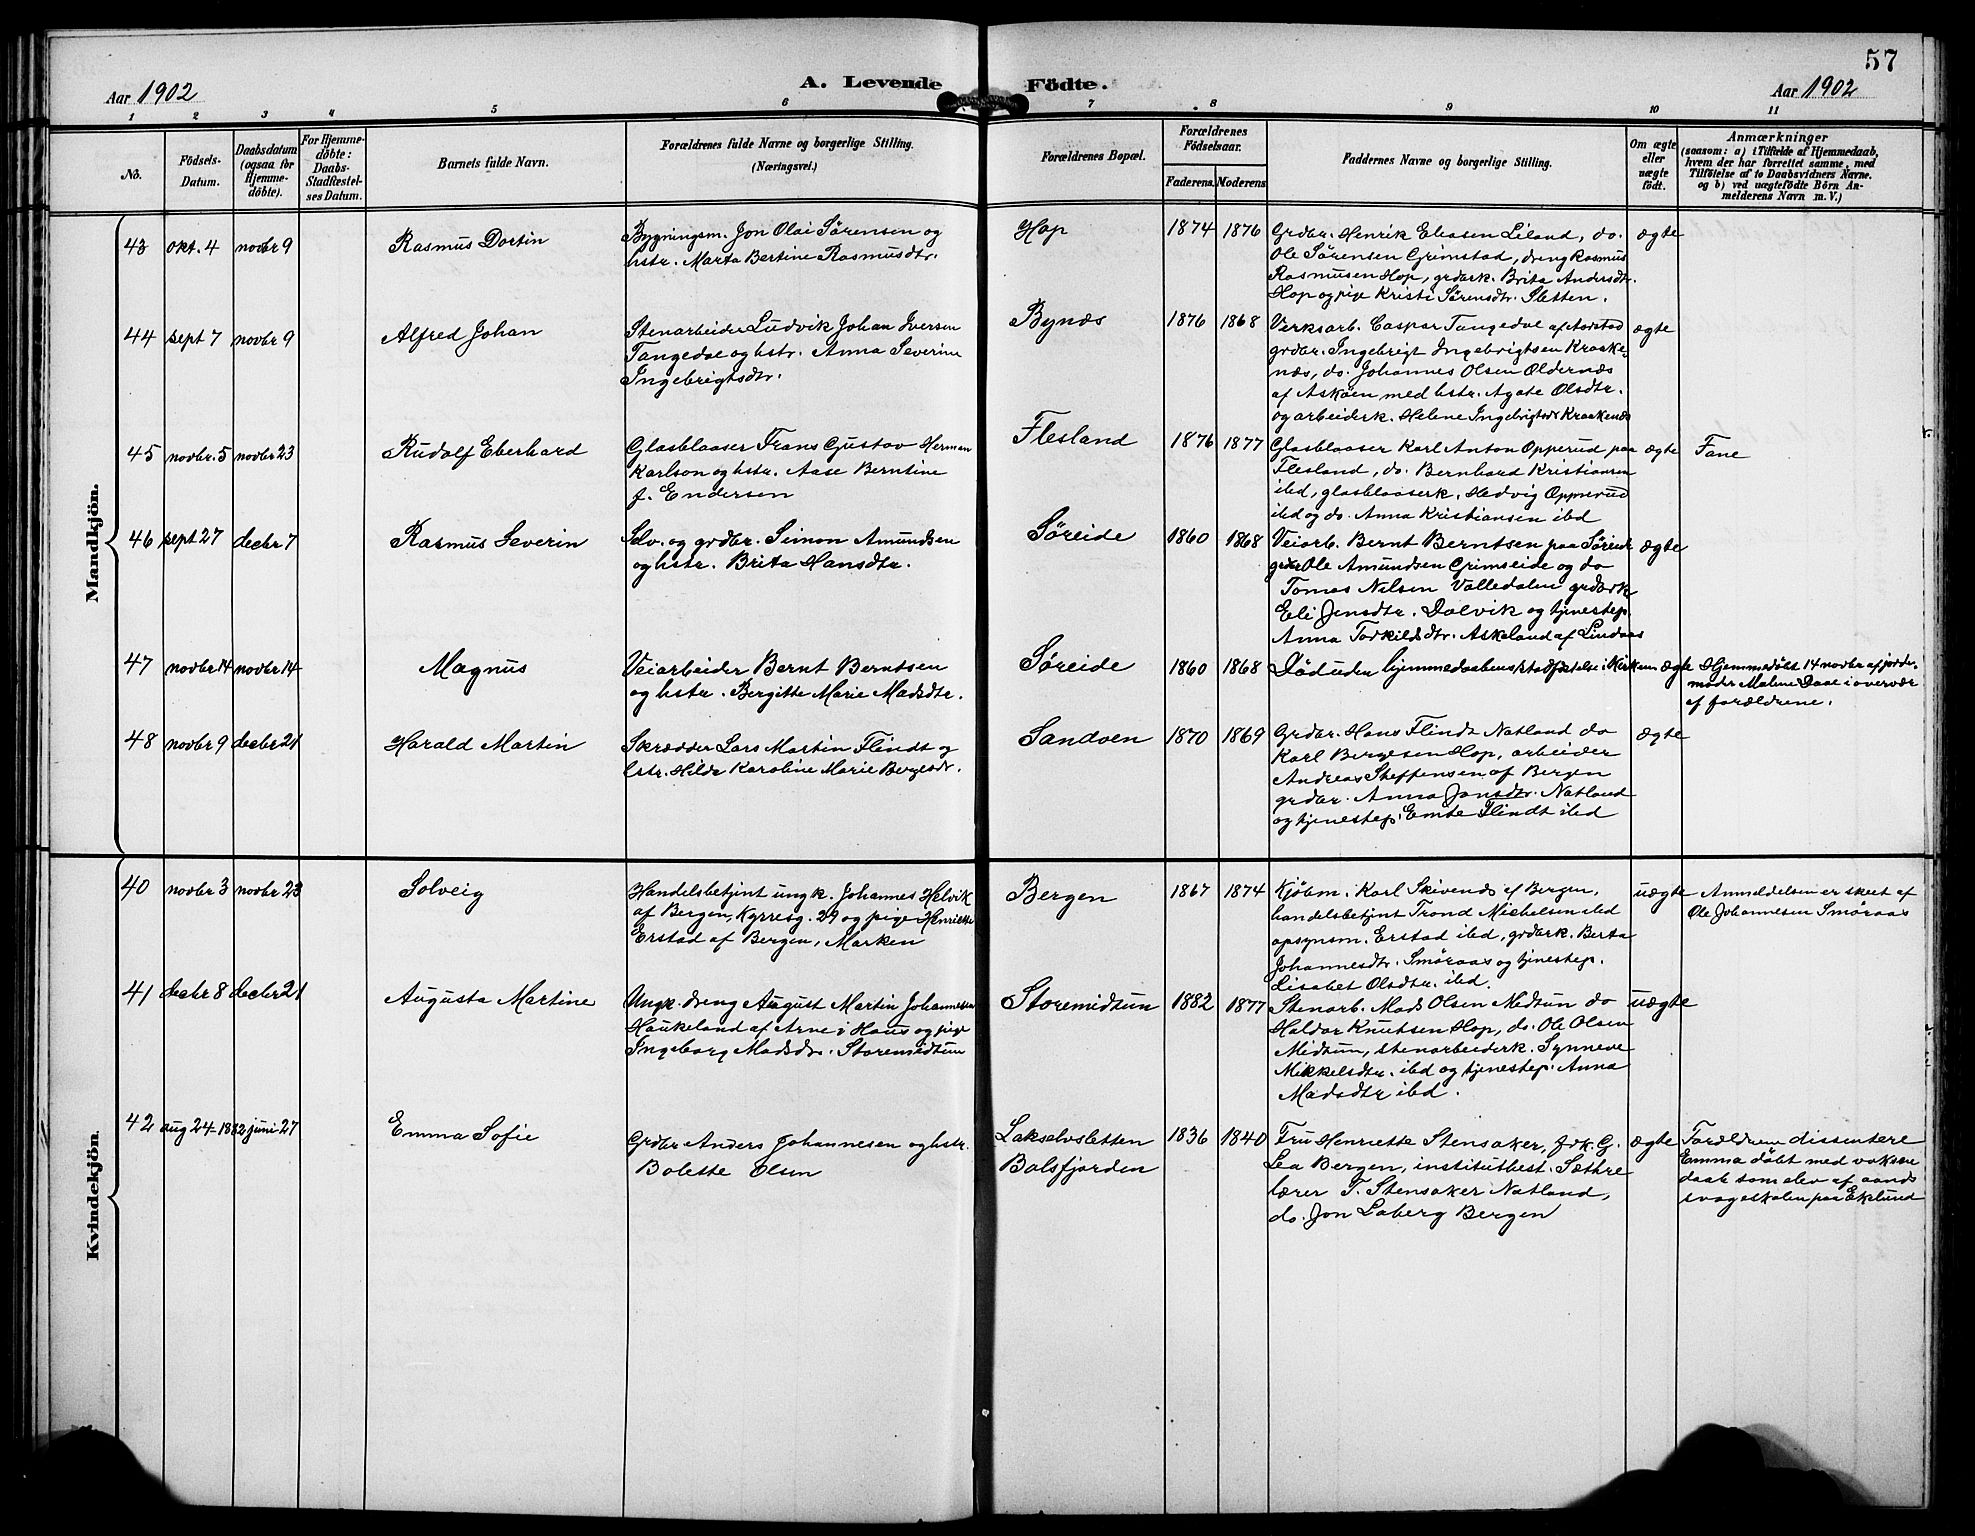 57
Aar 1902
A. Levende Födte.
Aar 1902
1 2 3 4 5 6 7 8 9 10 11
No.
Födsels-
Datum.
Daabsdatum
(ogsaa for
Hjemme-
döbte).
For Hjemme-
döbte:
Daabs-
Stadfæstel-
ses Datum.
Barnets fulde Navn.
Forældrenes fulde Navne og borgerlige Stilling.
(Næringsvei.)
Forældrenes Bopæl.
Forældrenes
Födselsaar.
Faderens. Moderens.
Faddernes Navne og borgerlige Stilling.
Om ægte
eller
uægte
födt.
Anmærkninger
(saasom: a) i Tilfælde af Hjemmedaab,
hvem der har forrettet samme, med
Tilföielse af to Daabsvidners Navne.
og b) ved uægtefödte Börn An-
melderens Navn m. V.)
Mandkjön.
43 okt. 4 novbr 9
Rasmus Dortin
Bygningsm. Jon Olai Sørensen og
hstr. Marta Bertine Rasmusdtr.
Hop
1874 1876
Grdbr. Henrik Eliasen Liland, do.
Ole Sørensen Grimstad, dreng Rasmus
Rasmusen Hop, grdbrk. Brita Andersdtr.
Hop og pige Kristi Sørensdtr. Sletten.
ægte
44 sept 7 novbr 9
Alfred Johan
Stenarbeider Ludvik Johan Iversen
Tangedal og hstr. Anna Severine
Ingebrigtsdtr.
Bynæs
1876 1868
Verksarb. Caspar Tangedal af Aarstad
grdbr. Ingebrigt Ingebrigtsen Kraake-
næs, do. Johannes Olsen Oldernæs
af Askøen med hstr. Agate Olsdtr.
og arbeiderk. Helene Ingebrigtsdr Kraakenæs
ægte
45 novbr. 5 novbr 23
Rudolf Eberhard
Glasblaaser Frans Gustav Herman
Karlson og hstr. Aase Berntine
f. Endersen
Flesland
1876 1877
Glasblaaser Karl Anton Opperud paa
Flesland, do. Bernhard Kristiansen
ibd, glasblaaserk. Hedvig Opperud
ibd og do. Anna Kristiansen ibd
ægte
Fane
46 sept 27 decbr 7
Rasmus Severin
Selv. og grdbr. Simon Amundsen
og hstr. Brita Hansdtr.
Søreide
1860 1868
Veiarb. Bernt Berntsen paa Søreide
grdbr Ole Amundsen Grimseide og do
Tomas Nilsen Valledalen grdbrk
Eli Jensdtr. Dalvik og tjenestep.
Anna Torkildsdtr. Askeland af Lindaas
ægte
47 novbr 14 novbr 14
Magnus
Veiarbeider Bernt Berntsen
og hstr. Bergitte Marie Madsdtr.
Søreide
1860 1868
Død uden hjemmedaabens stadfæstelse i Kirken
ægte
Hjemmedøbt 14 novbr af jorde-
moder Malene Daae i overvær
af forældrene.
48 novbr 9 decbr 21
Harald Martin
Skrædder Lars Martin Flindt og
hstr. Hilda Karoline Marie Bergesdr.
Sandven
1870 1869
Grdbr. Hans Flindt Natland do
Karl Bergesen Hop, arbeider
Andreas Steffensen af Bergen
grdbr. Anna Jonsdtr. Natland
og tjenestep. Emte Flindt ibd
ægte
Kvindekjön.
40 novbr 3 novbr 23
Solveig
Handelsbetjint ungk. Johannes Helvik
af Bergen, Kyrresg. 29 og pige Henriette
Erstad af Bergen, Marken
Bergen
1867 1874
Kjøbm. Karl Skivenes af Bergen,
handelsbetjint Trond Mickelsen ibd
opsynsm. Erstad ibd, grdbrk. Berta
Johannesdtr. Smøraas og tjenestep.
Lisabet Olsdtr. ibd.
uægte
Anmeldelsen er skeet af
Ole Johannesen Smøraas
41 decbr 8 decbr 21
Augusta Martine
Ungk. dreng August Martin Johannessen
Haukeland af Arne i Haus og pige
Ingeborg Madsdr. Storemidtun
Storemidtun
1882 1877
Stenarb. Mads Olsen Midtun do
Haldor Knutsen Hop, do. Ole Olsen
Midtun, stenarbeiderk. Synneve
Mikkelsdtr. ibd og tjenestep. Anna
Madsdtr ibd.
uægte
42 aug 24-1882 juni 27
Emma Sofie
Grdbr Anders Johannesen og hstr.
Bolette Olsen
Lakselvsletten
Balsfjorden
1836 1840
Fru Henriette Stensaker, frk. G.
Lea Bergen, institutbest. Sæthre
lærer T. Stensaker Natland,
do. Jon Laberg Bergen
ægte
Forældrene dissentere
Emma døbt med voksen
daab som elev af aands
svageskolen paa Eklund